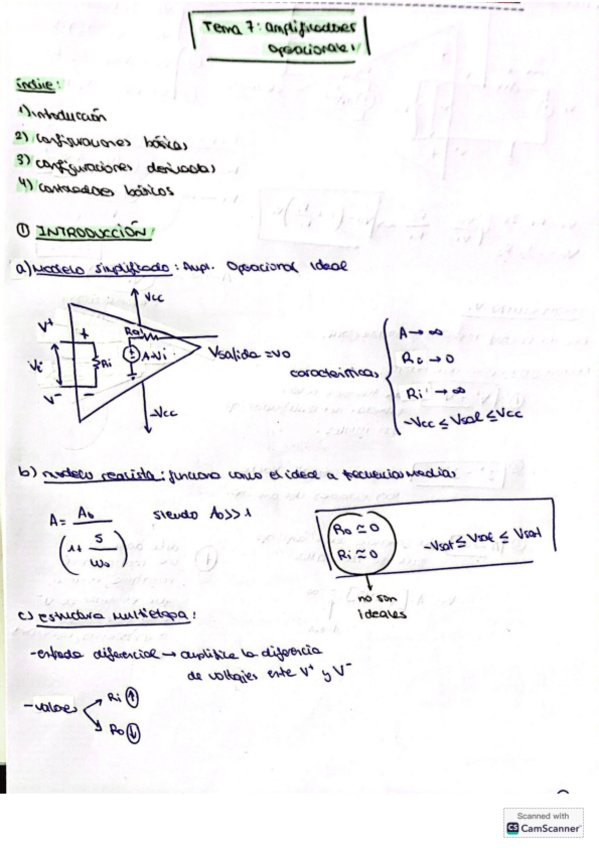 Tema 7: amplificadores
operacionales
índice:
1) introducción
2) configuraciones básicas
3) configuraciones derivadas
4) controladores básicos
① INTRODUCCIÓN
a) Modelo simplificado: Ampl. Operacional ideal
Vcc
V+
+
Ro
Vi
Ri
A·Vi
Vsalida = Vo
V-
-
-Vcc
características
A → ∞
Ro → 0
Ri → ∞
-Vcc ≤ Vsal ≤ Vcc
b) modelo realista: funciona como el ideal a frecuencias medias
A = Ao / (1 + s/ωo)
siendo Ao >> 1
Ro ≃ 0
Ri ≃ 0
-Vsat ≤ Vsal ≤ Vsat
no son
ideales
c) estructura multietapa:
- entrada diferencial → amplifica la diferencia
de voltajes entre V+ y V-
- valores
Ri ↑
Ro ↓
Scanned with
CS CamScanner